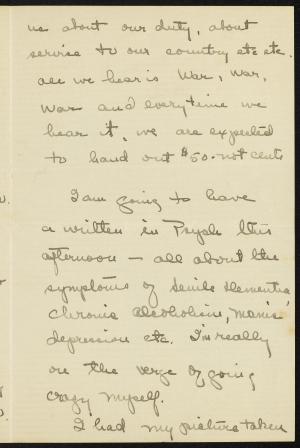 us about our duty, about
service to our country etc etc.
all we hear is War, War,
War and everytime we
hear it, we are expected
to hand out $50. not cents
I am going to have
a written in Psych this
afternoon — all about the
symptoms of Senile Dementia
Chronic Alcoholism, Manic
depression etc. I'm really
on the verge of going
crazy myself.
I had my picture taken